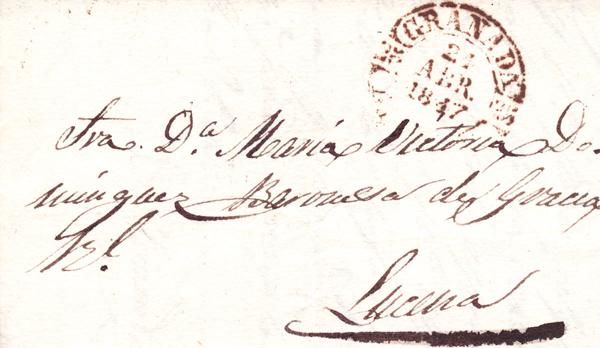 GRANADA
21
ABR.
1847
Sra. D.ª Maria Victoria Do-
minguez Baronesa de Gracia
Rl.
Lucena